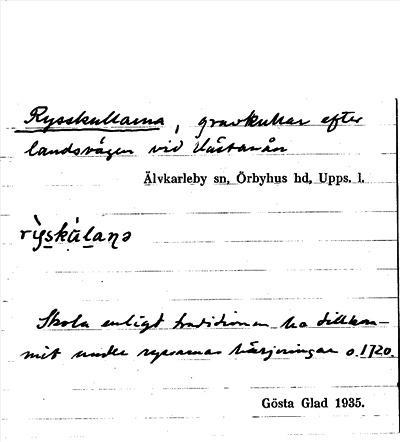 Rysskullarna, gravkullar efter
landsvägen vid Västanån
Älvkarleby sn, Örbyhus hd, Upps. l.
rỳskùlaṇə
Skola enligt traditionen ha tillkom-
mit under ryssarnas härjningar o. 1720.
Gösta Glad 1935.